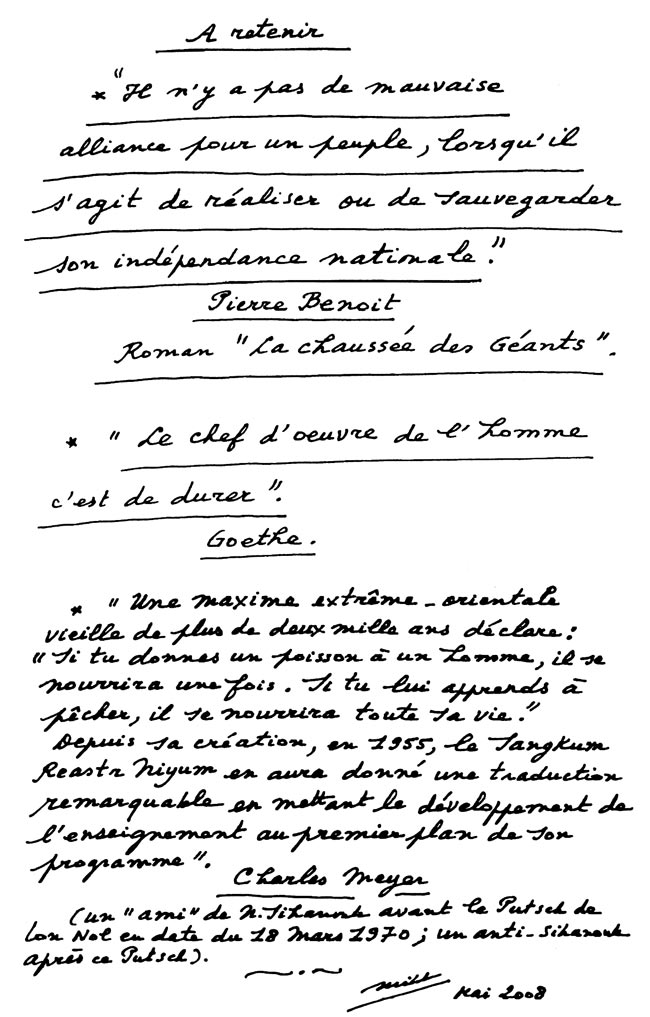 A retenir
* "Il n'y a pas de mauvaise
alliance pour un peuple, lorsqu'il
s'agit de réaliser ou de sauvegarder
son indépendance nationale."
Pierre Benoit
Roman "La chaussée des Géants".
* "Le chef d'oeuvre de l'homme
c'est de durer".
Goethe.
* "Une maxime extrême-orientale
vieille de plus de deux mille ans déclare:
"Si tu donnes un poisson à un homme, il se
nourrira une fois. Si tu lui apprends à
pêcher, il se nourrira toute sa vie."
Depuis sa création, en 1955, le Sangkum
Reastr Niyum en aura donné une traduction
remarquable en mettant le développement de
l'enseignement au premier plan de son
programme".
Charles Meyer
(un "ami" de N. Sihanouk avant le Putsch de
Lon Nol en date du 18 Mars 1970; un anti-Sihanouk
après ce Putsch).
Mai 2008